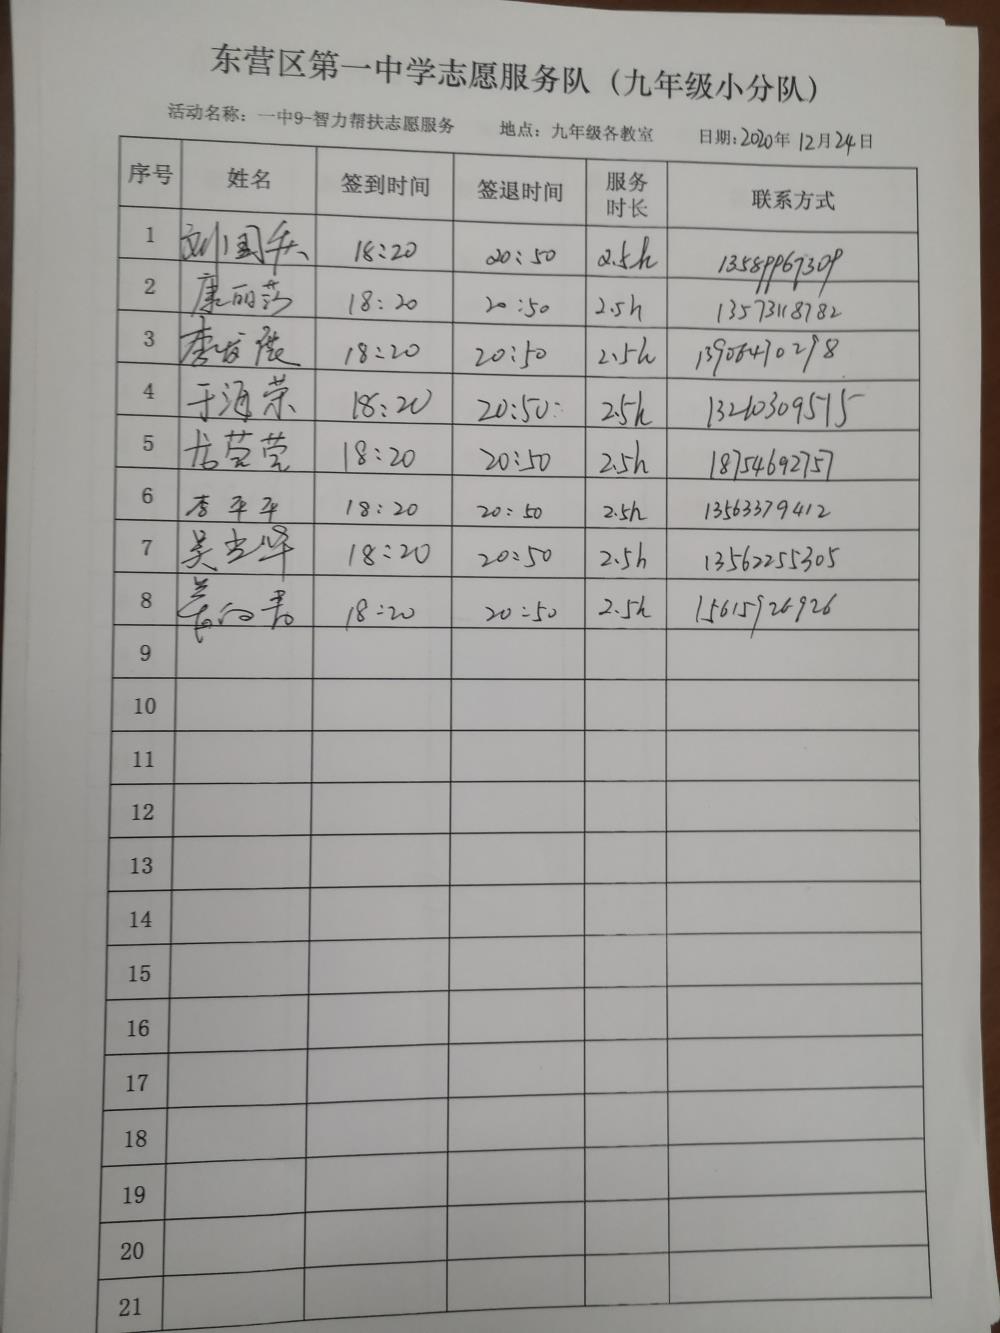 东营区第一中学志愿服务队（九年级小分队）
活动名称：一中9-智力帮扶志愿服务 地点：九年级各教室 日期：2020年12月24日
序号 姓名 签到时间 签退时间 服务时长 联系方式
1 刘国 18:20 20:50 2.5h 13589967309
2 康丽 18:20 20:50 2.5h 13573118782
3 李 18:20 20:50 2.5h 13906470298
4 于海荣 18:20 20:50 2.5h 13210309515
5 尤莹莹 18:20 20:50 2.5h 18754692757
6 李平平 18:20 20:50 2.5h 13563379412
7 吴 18:20 20:50 2.5h 13562255305
8 18:20 20:50 2.5h 15615926926
9
10
11
12
13
14
15
16
17
18
19
20
21